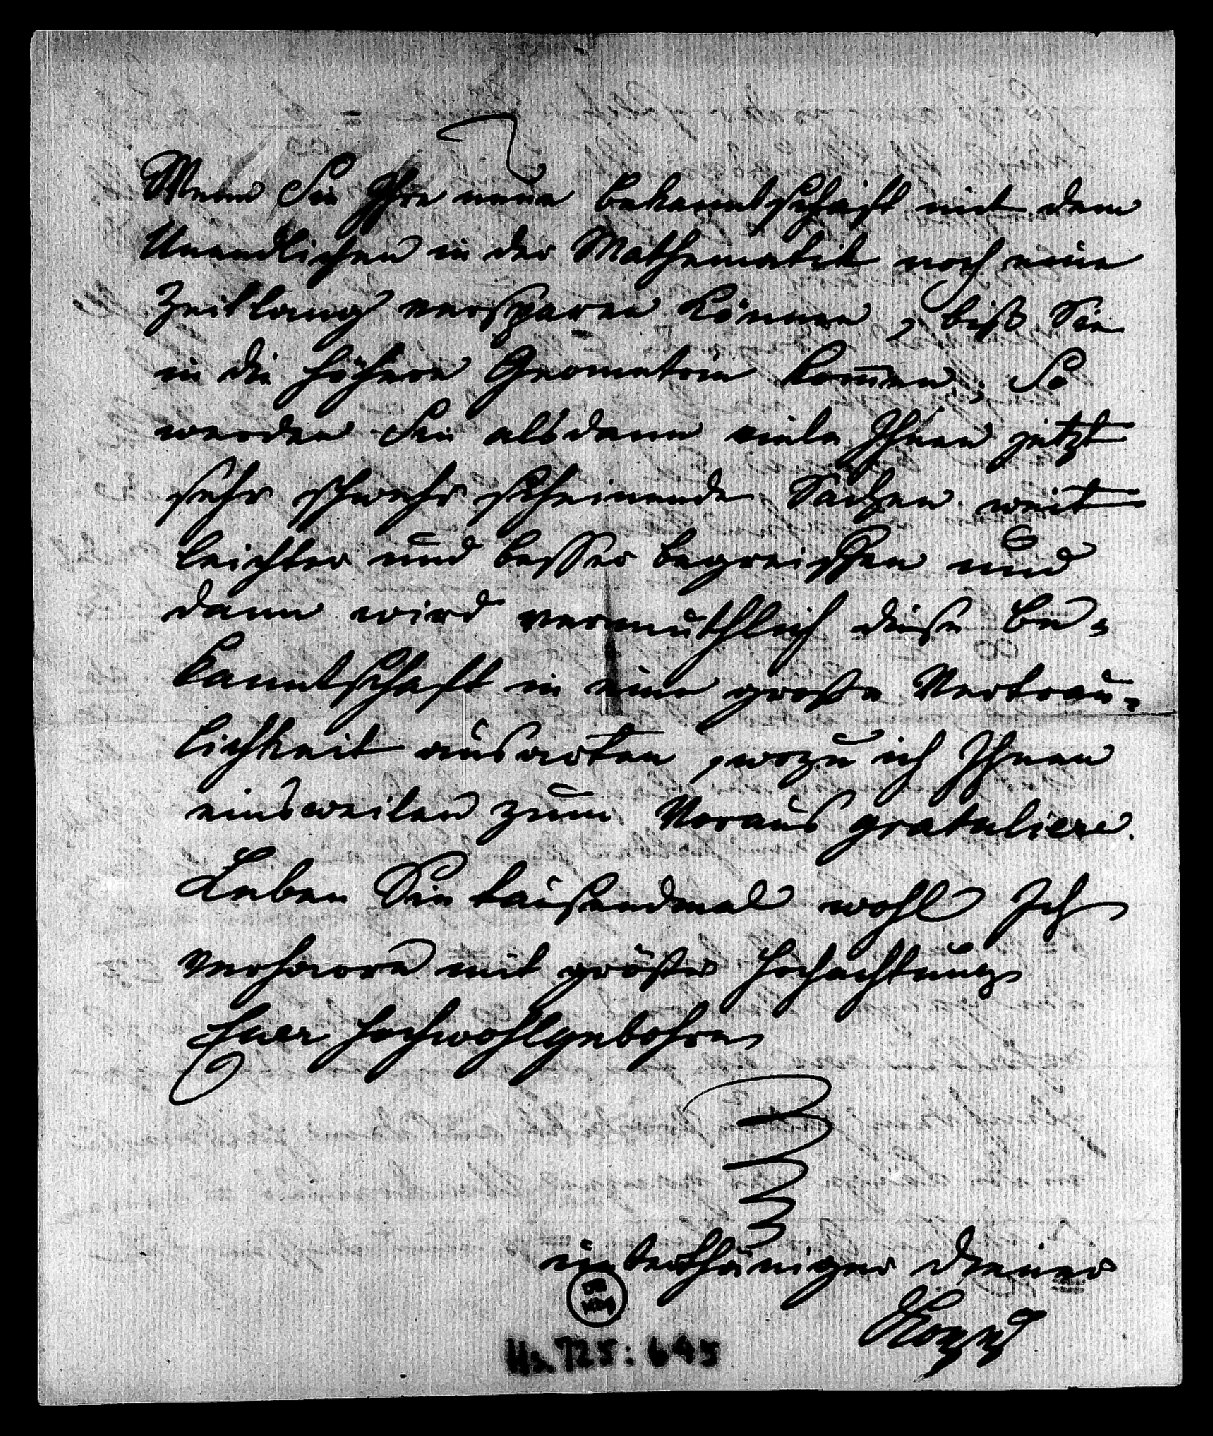 Wenn Sie Ihre neue bekanntschaft mit dem
Unendlichen in der Mathematik noch eine
Zeitlang verspaaren können, biß Sie
in die höhere Geometrie kom̄en; So
werden Sie alsdann viele Ihnen jetzt
sehr schwehr scheinende Sachen weit
leichter und besser begreiffen und
dann wird vermuthlich diese be-
kanntschaft in eine große Vertrau-
lichkeit ausarten, wozu ich Ihnen
einsweilen zum Voraus gratuliere.
Leben Sie tausendmal wohl Ich
verharre mit größter Hochachtung
Euer Hochwohlgebohren
unterthäniger Diener
Hs. 725: 645